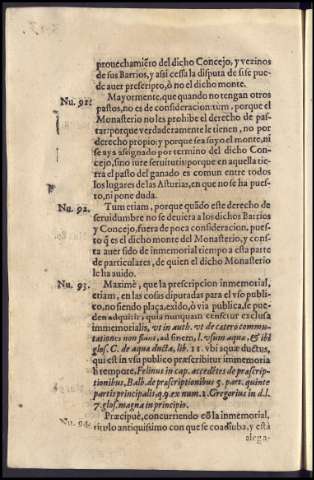 prouechamiẽto del dicho Concejo, y vezinos
de sus Barrios, y assi cessa la disputa de si se pue-
de auer prescripto, ò no el dicho monte.
Nu. 91. Mayormente, que quando no tengan otros
pastos, no es de consideracion tum, porque el
Monasterio no les prohibe el derecho de pas-
tar: porque verdaderamente le tienen, no por
derecho propio, y porque sea suyo el monte, ni
se aya assignado por termino del dicho Con-
cejo, sino iure seruitutis: porque en aquella tie-
rra el pasto del ganado es comun entre todos
los lugares de las Asturias, en que no se ha pues-
to, ni pone duda.
Nu. 92. Tum etiam, porque quãdo este derecho de
seruidumbre no se deuiera a los dichos Barrios
y Concejo, fuera de poca consideracion, pues-
to q̃ es el dicho monte del Monasterio, y cons-
ta auer sido de inmemorial tiempo a esta parte
de particulares, de quien el dicho Monasterio
le ha auido.
Nu. 93. Maximè, que la prescripcion inmemorial,
etiam, en las cosas diputadas para el vso publi-
co, no siendo plaça, exido, ò via publica, se pue-
den adquirir, quia nunquam censetur exclusa
immemorialis, vt in auth. vt de cætero commu-
tationes non fiant, ad finem, l. vsum aquæ, & ibi
glos. C. de aquæ ductu, lib. 11. vbi aquæ ductus,
qui est in vsu publico præscribitur immemoria
li tempore, Felinus in cap. accedẽtes de præscrip-
tionibus, Balb. de præscriptionibus 5. part. quinte
partis principalis, q. 9. ex num. 2. Gregorius in d. l.
7. glos. magna in principio.
Nu. 94. Præcipuè, concurriendo cõ la inmemorial,
titulo antiquissimo con que se coadiuba, y està
alega-